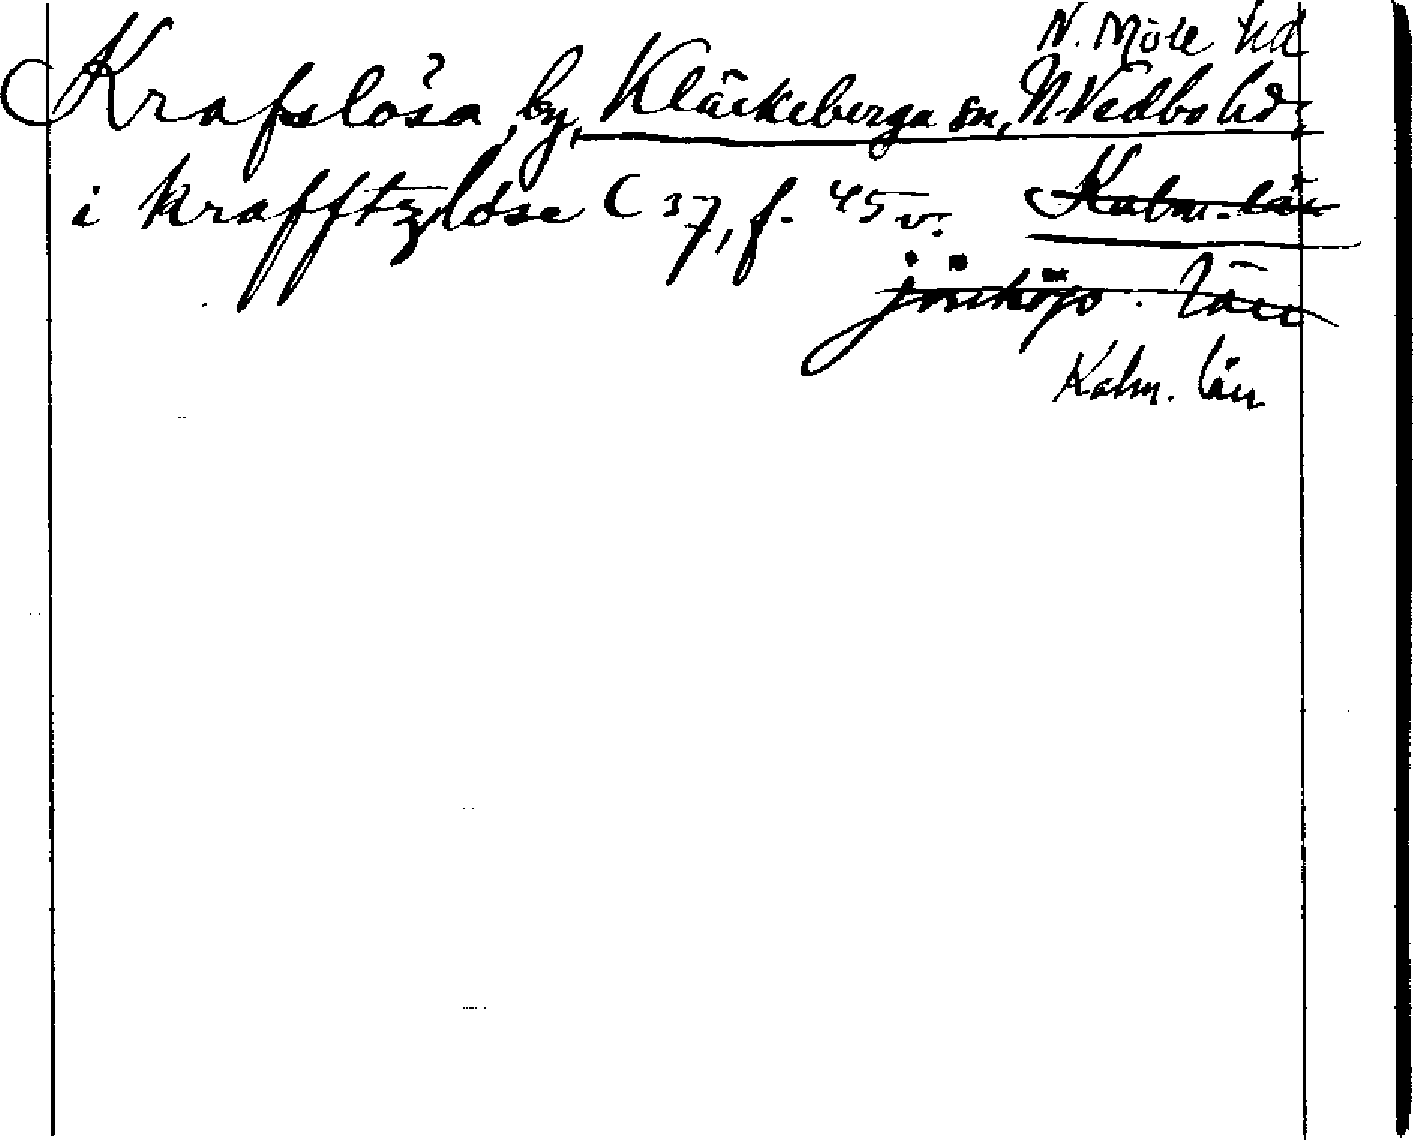 N. Möre hd
Krafslösa, by, Kläckeberga sn, N. Vedbo hd,
i krafftzløse C 37, f. 45 v. Kalm. län
jönköps. län
Kalm. län